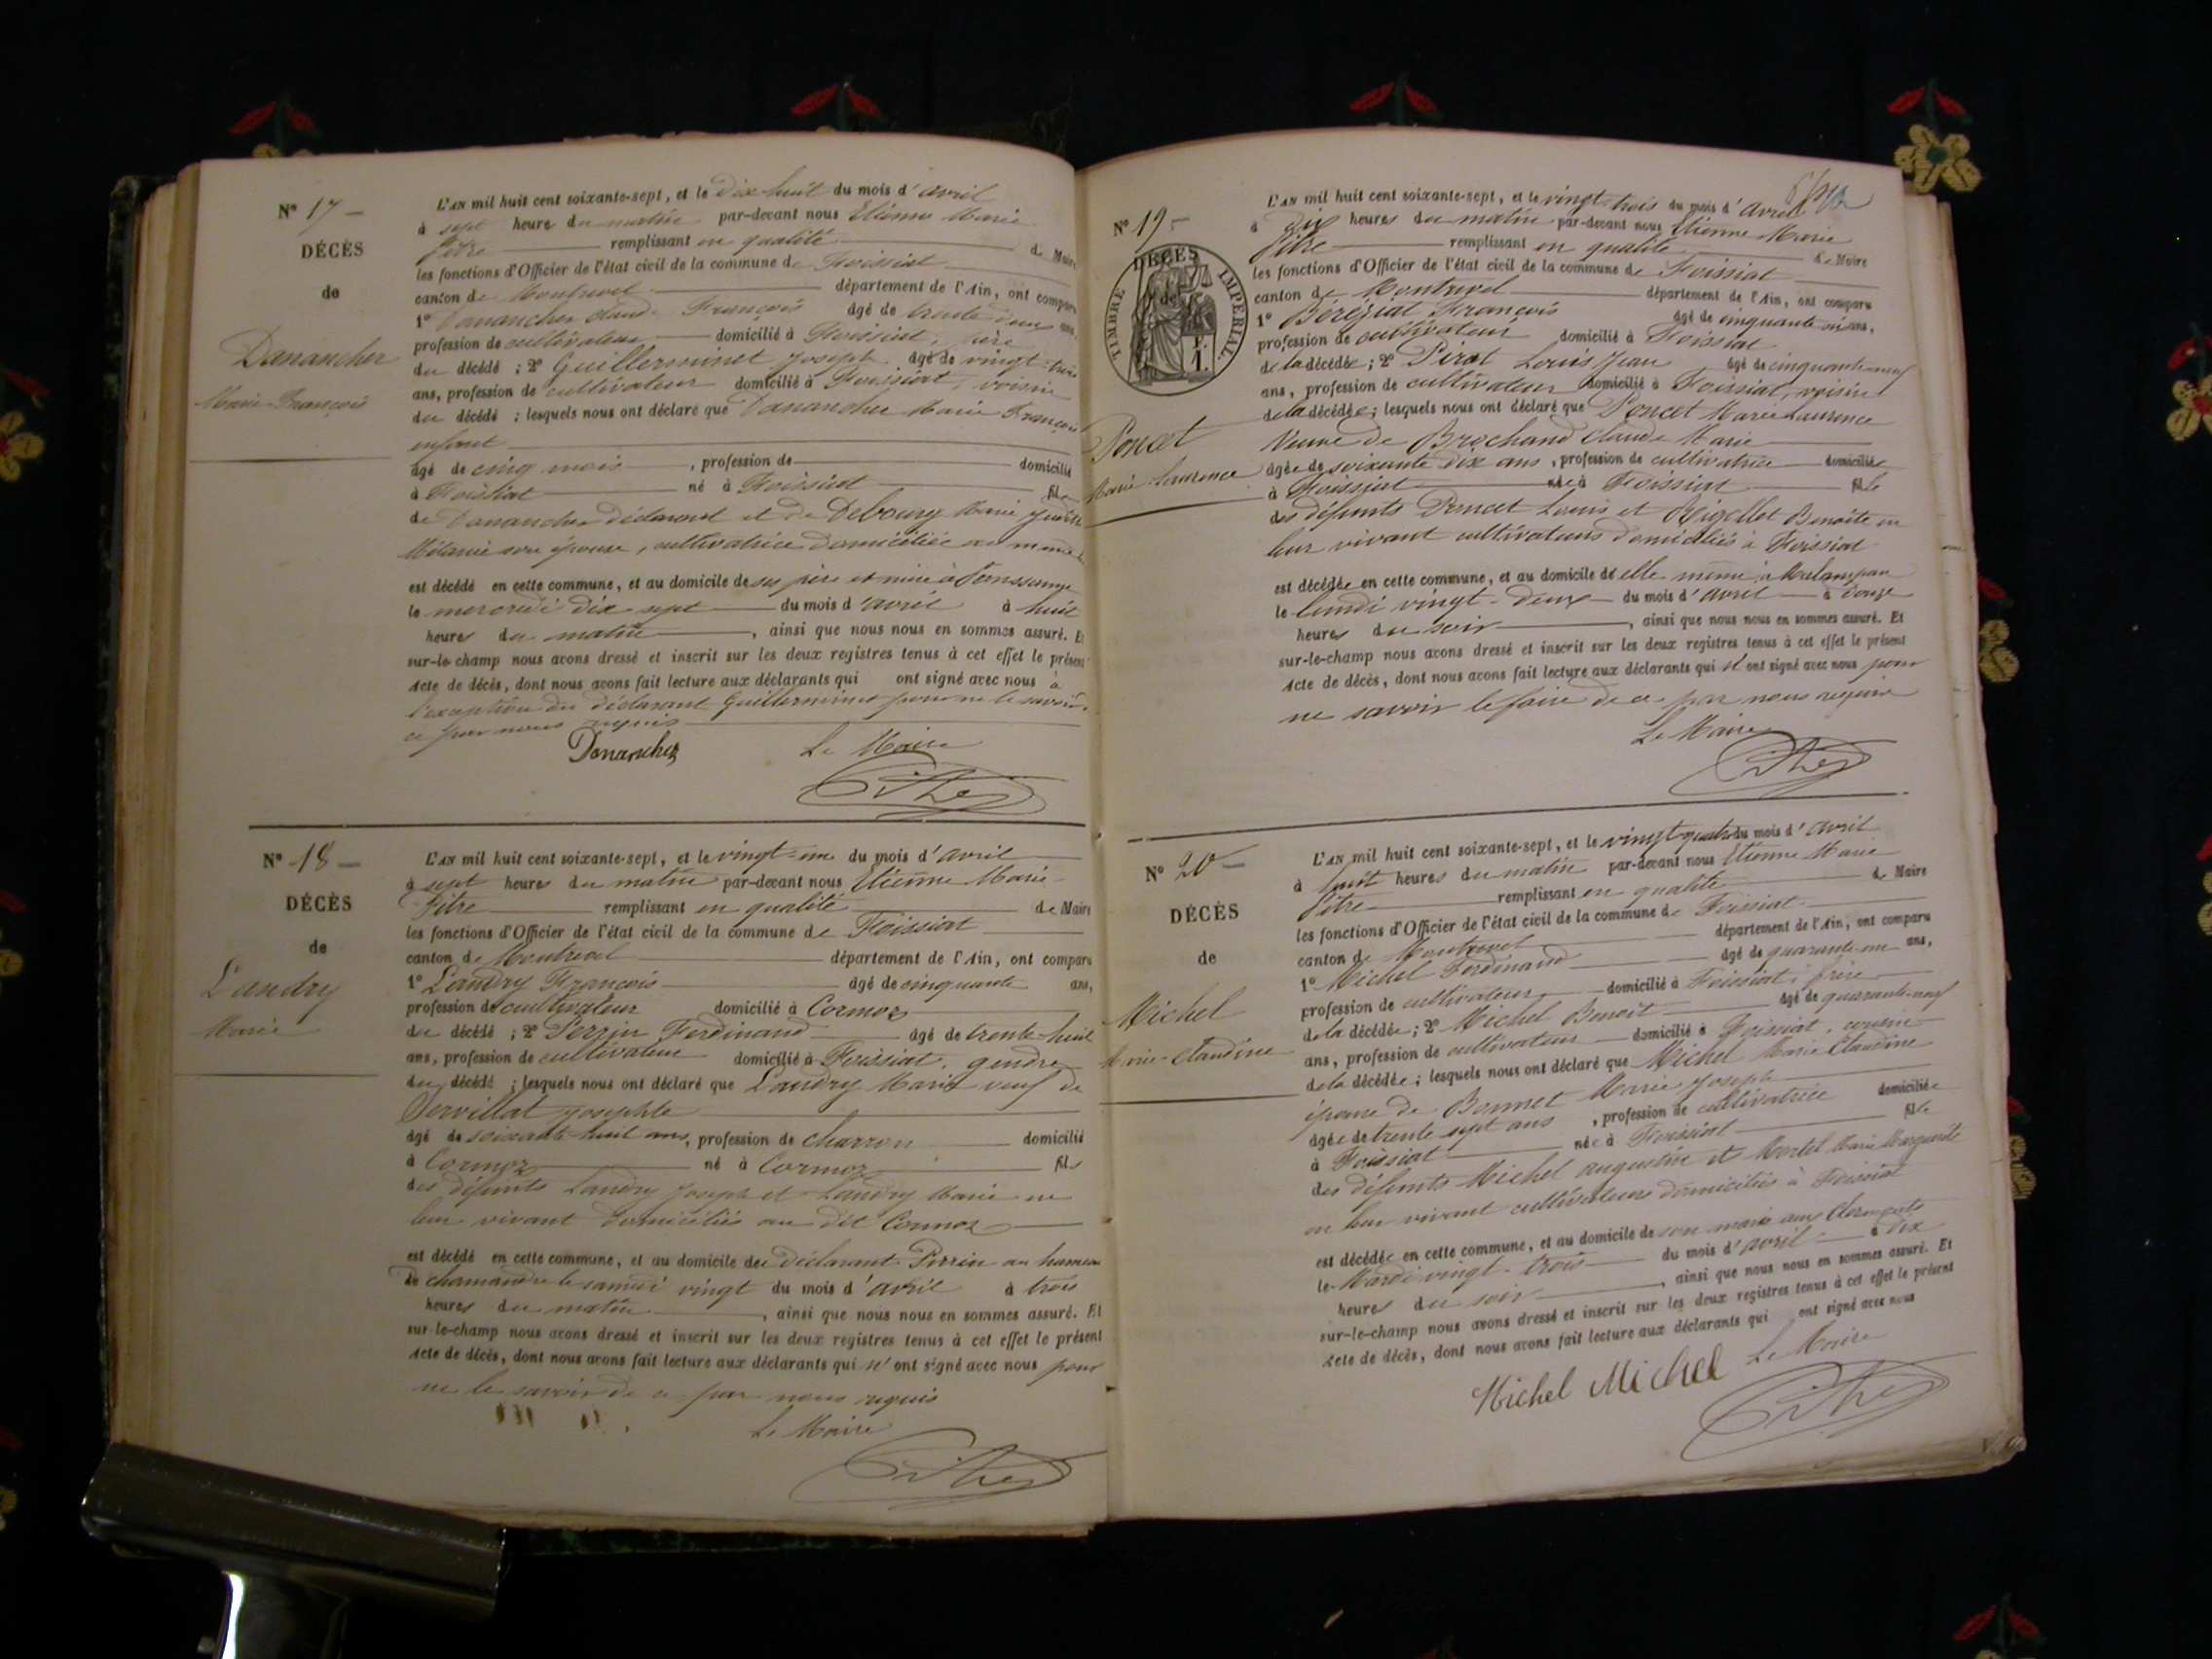 N° 17 -
DÉCÈS
de
Danancher
Marie François
L'AN mil huit cent soixante-sept, et le dix huit du mois d'avril
à sept heure du matin par-devant nous Etienne Marie
Pitre remplissant en qualité de Maire
les fonctions d'Officier de l'état civil de la commune de Foissiat
canton de Montrevel département de l'Ain, ont comparu
1° Danancher Claude François âgé de trente deux ans,
profession de cultivateur domicilié à Foissiat, père
du décédé ; 2° Guillerminet Joseph âgé de vingt-trois
ans, profession de cultivateur domicilié à Foissiat, voisin
du décédé ; lesquels nous ont déclaré que Danancher Marie François
enfant
âgé de cinq mois, profession de domicilié
à Foissiat né à Foissiat fils
de Danancher déclarant et de Debourg Marie
Mélanie son épouse, cultivatrice domiciliée au même
est décédé en cette commune, et au domicile de ses père et mère à
le mercredi dix sept du mois d'avril à huit
heures du matin, ainsi que nous nous en sommes assuré. Et
sur-le-champ nous avons dressé et inscrit sur les deux registres tenus à cet effet le présent
acte de décès, dont nous avons fait lecture aux déclarants qui ont signé avec nous à
l'exception du déclarant Guillerminet pour ne le savoir,
ce par nous requis
Danancher Le Maire
Pitre
N° 18 -
DÉCÈS
de
Landry
Marie
L'AN mil huit cent soixante-sept, et le vingt-un du mois d'avril
à sept heures du matin par-devant nous Etienne Marie
Pitre remplissant en qualité de Maire
les fonctions d'Officier de l'état civil de la commune de Foissiat
canton de Montrevel département de l'Ain, ont comparu
1° Landry François âgé de cinquante ans,
profession de cultivateur domicilié à Cormoz
du décédé ; 2° Perrin Ferdinand âgé de trente-huit
ans, profession de cultivateur domicilié à Foissiat, gendre
du décédé ; lesquels nous ont déclaré que Landry Marie veuf de
Servillat Josephte
âgé de soixante-huit ans, profession de charron domicilié
à Cormoz né à Cormoz fils
des défunts Landry Joseph et Landry Marie en
leur vivant domiciliés au dit Cormoz
est décédé en cette commune, et au domicile du déclarant Perrin au hameau
de chamandre le samedi vingt du mois d'avril à trois
heures du matin, ainsi que nous nous en sommes assuré. Et
sur-le-champ nous avons dressé et inscrit sur les deux registres tenus à cet effet le présent
acte de décès, dont nous avons fait lecture aux déclarants qui n'ont signé avec nous pour
ne le savoir de ce par nous requis
Le Maire
Pitre
N° 19 -
DÉCÈS
de
TIMBRE IMPÉRIAL.
F.
1.
Poncet
Marie Laurence
L'AN mil huit cent soixante-sept, et le vingt-trois du mois d'avril
à dix heures du matin par-devant nous Etienne Marie
Pitre remplissant en qualité de Maire
les fonctions d'Officier de l'état civil de la commune de Foissiat
canton de Montrevel département de l'Ain, ont comparu
1° Béréziat François âgé de cinquante six ans,
profession de cultivateur domicilié à Foissiat
de la décédée ; 2° Pirat Louis Jean âgé de cinquante-neuf
ans, profession de cultivateur domicilié à Foissiat, voisins
de la décédée ; lesquels nous ont déclaré que Poncet Marie Laurence
Veuve de Brochand Claude Marie
âgée de soixante dix ans, profession de cultivatrice domiciliée
à Foissiat née à Foissiat fille
des défunts Poncet Louis et Rigollet Benoîte en
leur vivant cultivateurs domiciliés à Foissiat
est décédée en cette commune, et au domicile de elle même à Malampan
le lundi vingt-deux du mois d'avril à douze
heures du soir, ainsi que nous nous en sommes assuré. Et
sur-le-champ nous avons dressé et inscrit sur les deux registres tenus à cet effet le présent
acte de décès, dont nous avons fait lecture aux déclarants qui n'ont signé avec nous pour
ne savoir le faire de ce par nous requis
Le Maire
Pitre
N° 20 -
DÉCÈS
de
Michel
Marie Claudine
L'AN mil huit cent soixante-sept, et le vingt quatre du mois d'avril
à huit heures du matin par-devant nous Etienne Marie
Pitre remplissant en qualité de Maire
les fonctions d'Officier de l'état civil de la commune de Foissiat
canton de Montrevel département de l'Ain, ont comparu
1° Michel Ferdinand âgé de quarante-un ans,
profession de cultivateur domicilié à Foissiat, frère
de la décédée ; 2° Michel Benoît âgé de quarante-neuf
ans, profession de cultivateur domicilié à Foissiat, cousin
de la décédée ; lesquels nous ont déclaré que Michel Marie Claudine
épouse de Bonnet Marie Joseph
âgée de trente sept ans, profession de cultivatrice domiciliée
à Foissiat née à Foissiat fille
des défunts Michel augustin et Martel Marie Marguerite
en leur vivant cultivateurs domiciliés à Foissiat
est décédée en cette commune, et au domicile de son mari aux
le Mardi vingt-trois du mois d'avril à dix
heures du soir, ainsi que nous nous en sommes assuré. Et
sur-le-champ nous avons dressé et inscrit sur les deux registres tenus à cet effet le présent
acte de décès, dont nous avons fait lecture aux déclarants qui ont signé avec nous
Michel Michel Le Maire
Pitre